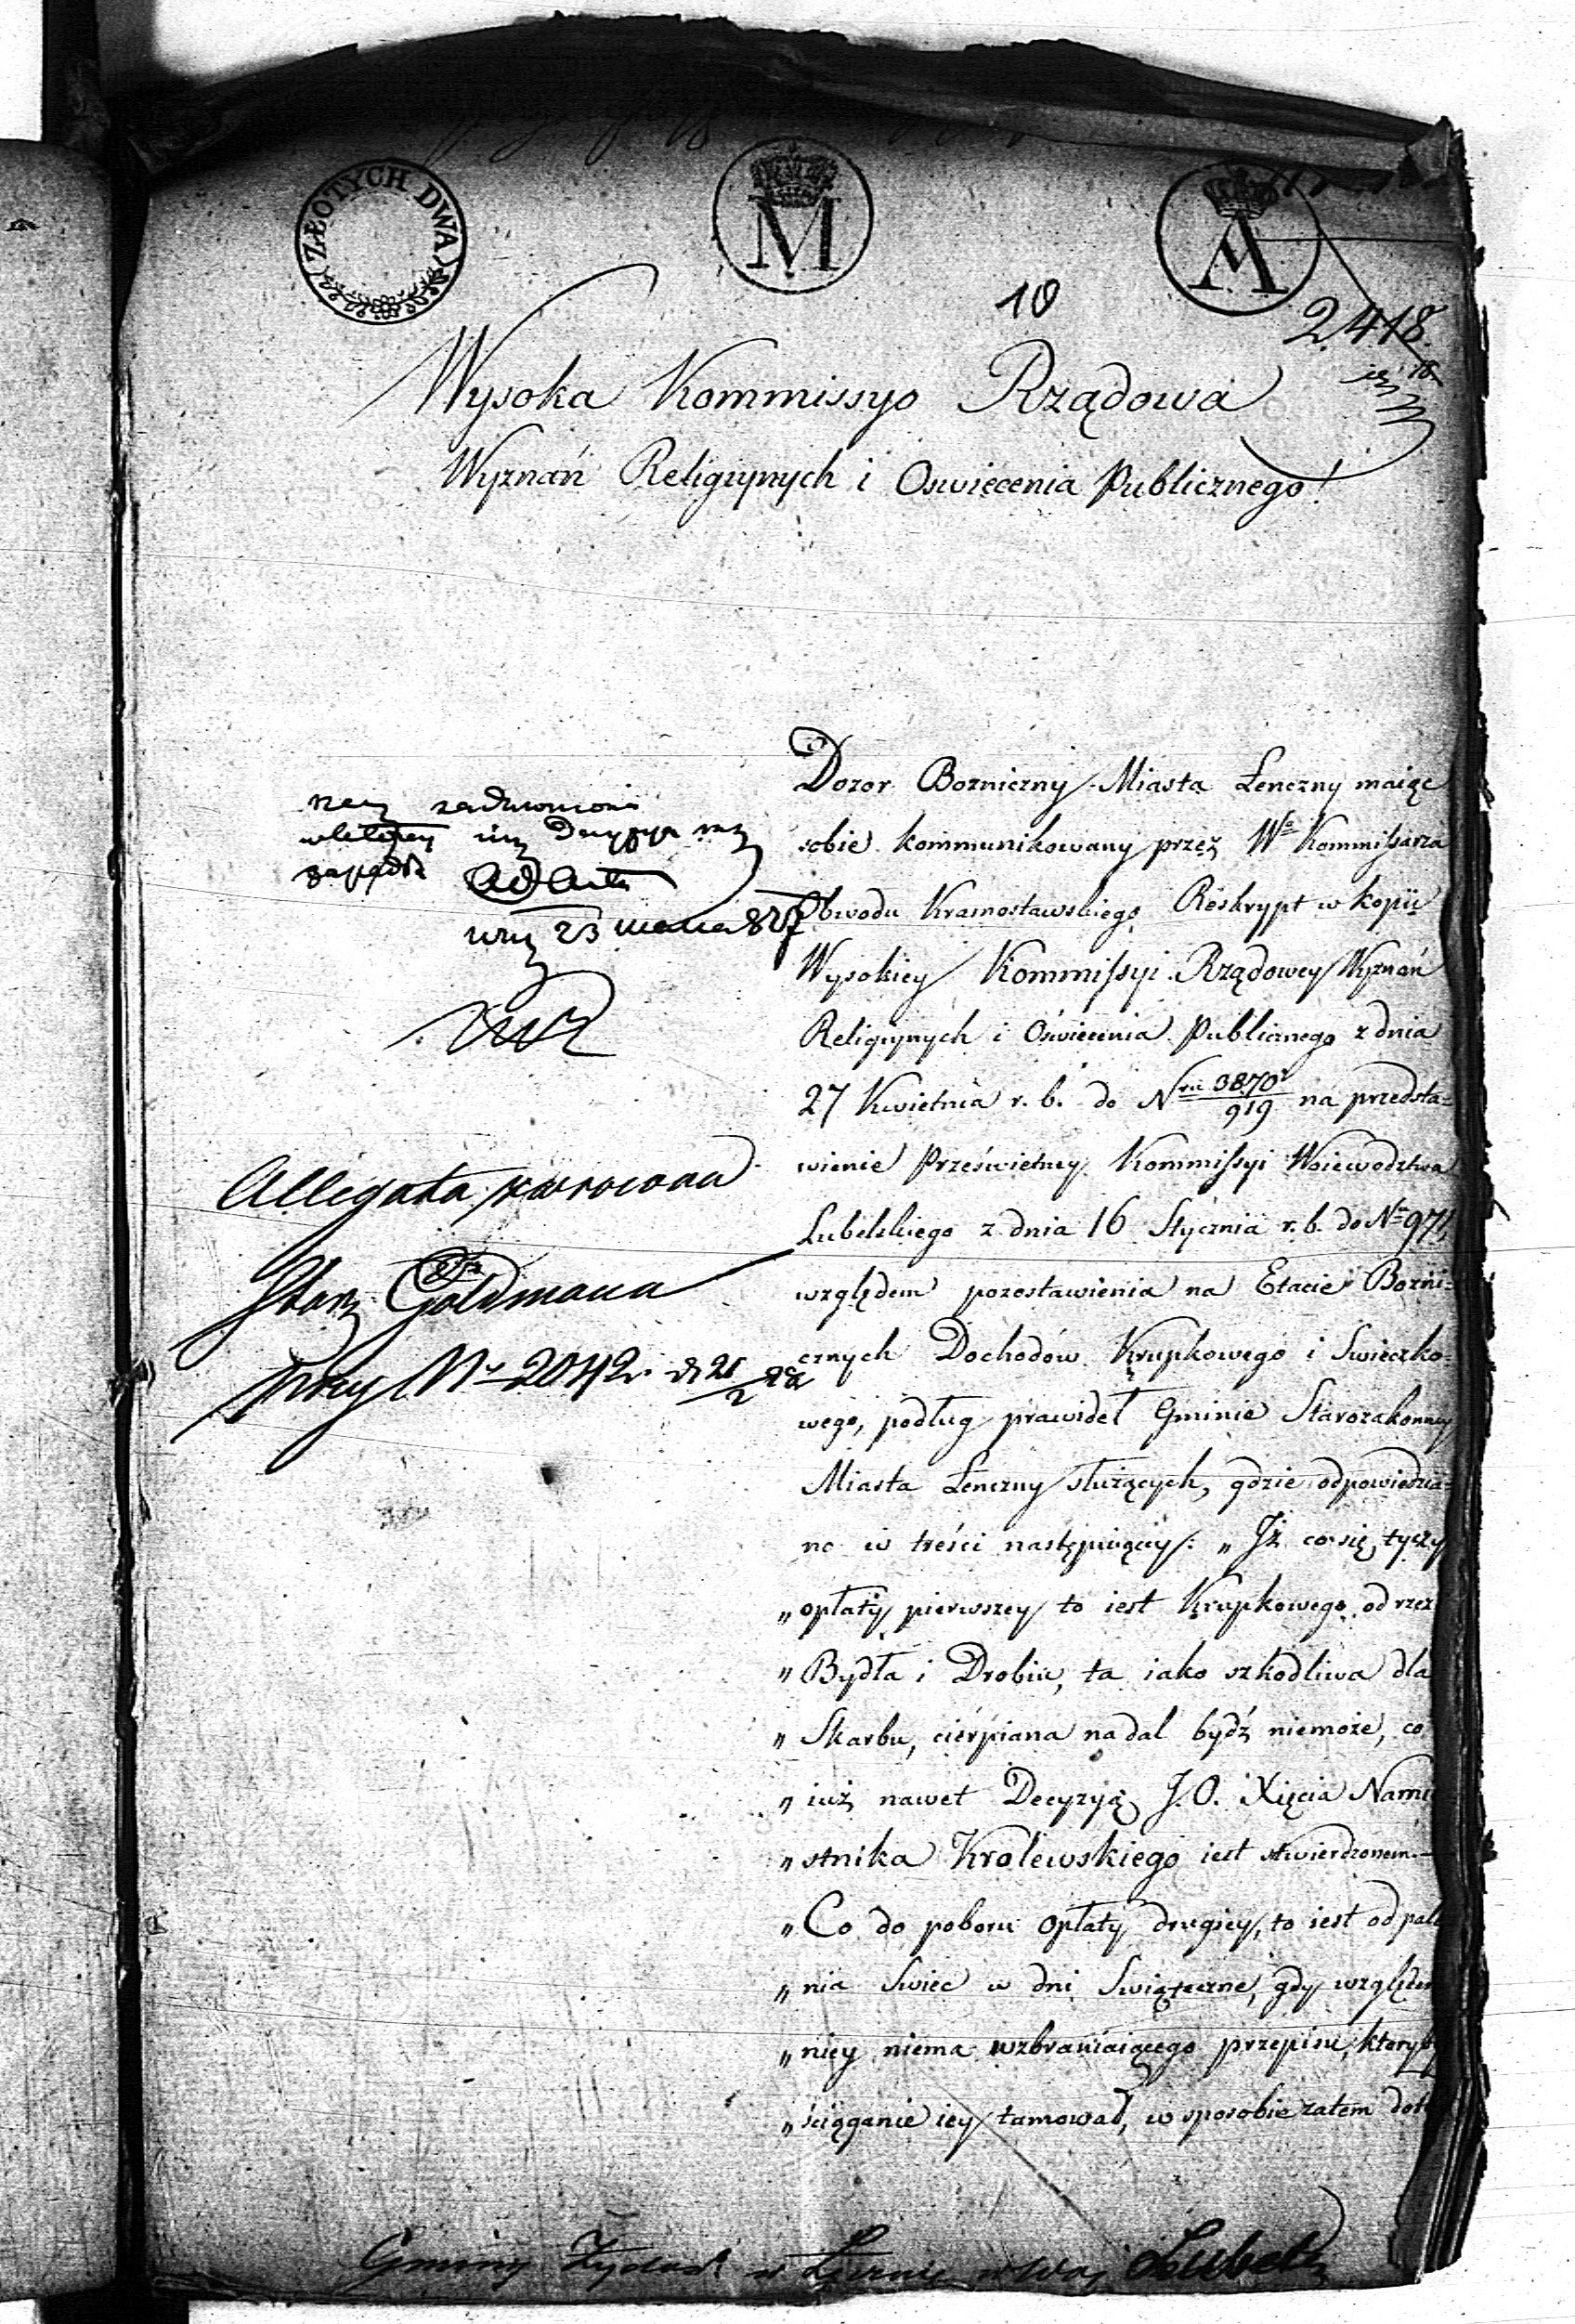 ZŁOTYCH DWA
M
A
10
2,418.
Wysoka Kommissyo Rządowa
Wyznań Religiynych i Oswiecenia Publicznego!
Dozor Bozniczny Miasta Łenczny maiąc
sobie kommunikowany przez Wo Kommissarza
Obwodu Krasnostawskiego Reskrypt w kopii
Wysokiey Kommissyi Rządowey Wyznań
Religiynych i Oświecenia Publicznego z dnia
27 Kwietnia r. b. do Nru 3870/919 na przedsta-
wienie Prześwietney Kommissyi Woiewodztwa
Lubelskiego z dnia 16 Stycznia r. b. do No 971,
względem pozostawienia na Etacie Bozni-
cznych Dochodów Krupkowego i Swieczko-
wego, podług prawideł Gminie Starozakonney
Miasta Łenczny służących, gdzie odpowiedzia-
no w treści następuiącey: „Iż co się tyczy
„opłaty pierwszey to iest Krupkowego od rzezi
„Bydła i Drobiu, ta iako szkodliwa dla
„Skarbu, cierpiana nadal bydź niemoże, co
„iuż nawet Decyzyą J. O. Xięcia Namie
„stnika Krolewskiego iest stwierdzonem.—
„Co do poboru opłaty drugiey, to iest od pale
„nia Swiec w dni Swiąteczne, gdy względem
„niey niema wzbraniaiącego przepisu, któryby
„ściąganie iey tamował, w sposobie zatem dot
23 marca 827
Allegata zwrocona
Goldmana
No 2042 21/2 28
Gminy Żydow w Łęczny w Woj Lubel